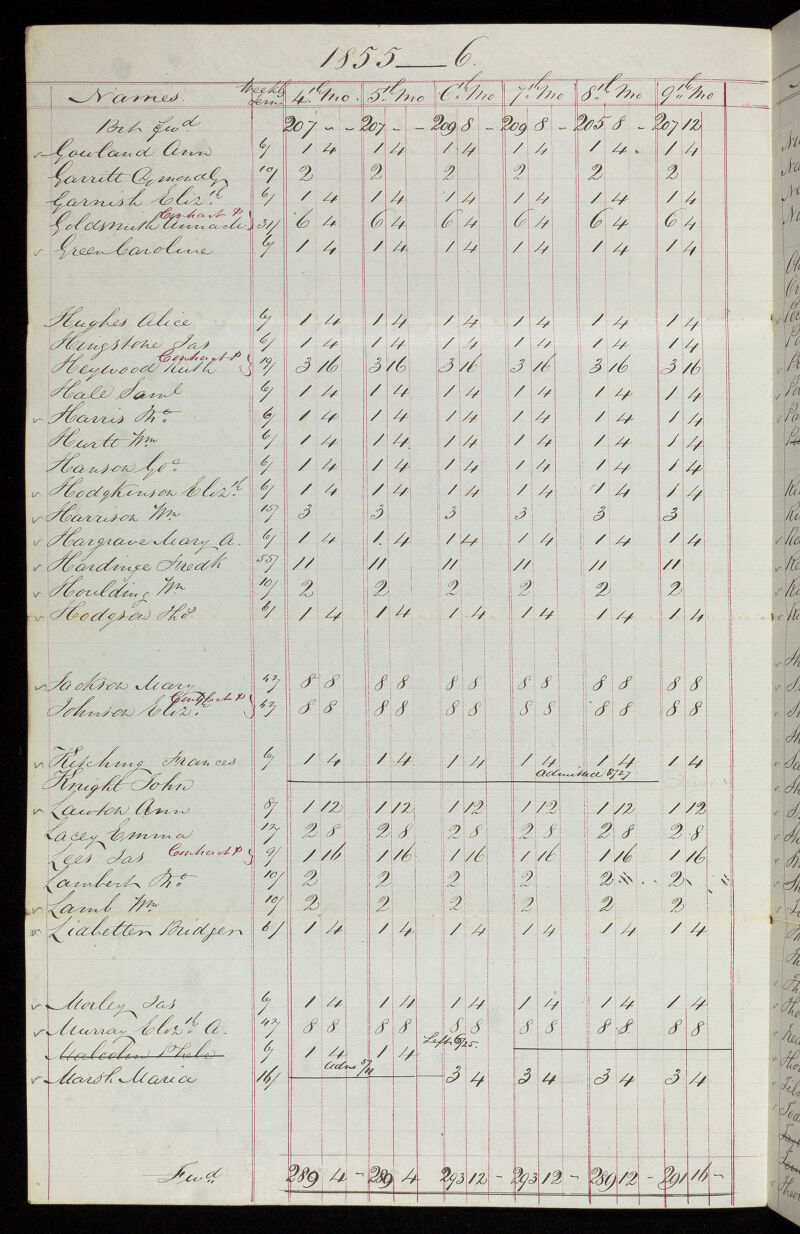 1855 — 6.
Names. Weekly Terms 4th Mo. 5th Mo 6th Mo 7th Mo 8th Mo 9th Mo
Brt fwd. 207 - - 207 - - 209 8 - 209 8 - 205 8 - 207 12
Gowland Ann 6/ 1 4 1 4 1 4 1 4 1 4 1 4
Garritt 10/ 2 2 2 2 2 2
Garnish Elizth 6/ 1 4 1 4 1 4 1 4 1 4 1 4
Contract &
Goldsmith Anna M. 31/ 6 4 6 4 6 4 6 4 6 4 6 4
Green Caroline 6/ 1 4 1 4 1 4 1 4 1 4 1 4
Hughes Alice 6/ 1 4 1 4 1 4 1 4 1 4 1 4
Hingstone Jas 6/ 1 4 1 4 1 4 1 4 1 4 1 4
Contract &
Heywood Ruth 19/ 3 16 3 16 3 16 3 16 3 16 3 16
Hale Saml 6/ 1 4 1 4 1 4 1 4 1 4 1 4
Harris Tho. 6/ 1 4 1 4 1 4 1 4 1 4 1 4
Hurtt Wm 6/ 1 4 1 4 1 4 1 4 1 4 1 4
Hanson Geo 6/ 1 4 1 4 1 4 1 4 1 4 1 4
Hodgkinson Elizth 6/ 1 4 1 4 1 4 1 4 1 4 1 4
Harrison Wm 15/ 3 3 3 3 3 3
Hargrave Mary A. 6/ 1 4 1 4 1 4 1 4 1 4 1 4
Hardinge Fredk 55/ 11 11 11 11 11 11
Houlding Wm 10/ 2 2 2 2 2 2
Hodgson Thos 6/ 1 4 1 4 1 4 1 4 1 4 1 4
Jackson Mary 42/ 8 8 8 8 8 8 8 8 8 8 8 8
Contract &
Johnson Elizth 42/ 8 8 8 8 8 8 8 8 8 8 8 8
Kitching Frances 6/ 1 4 1 4 1 4 1 4 1 4 1 4
Knight John admitted 8/27
Lawton Ann 8/ 1 12 1 12 1 12 1 12 1 12 1 12
Lacey Emma 12/ 2 8 2 8 2 8 2 8 2 8 2 8
Lees Jas Contract & 9/ 1 16 1 16 1 16 1 16 1 16 1 16
Lambert Tho. 10/ 2 2 2 2 2 2
Lamb Wm 10/ 2 2 2 2 2 2
Lidbetter Bridger 6/ 1 4 1 4 1 4 1 4 1 4 1 4
Morley Jas 6/ 1 4 1 4 1 4 1 4 1 4 1 4
Murray Elizth A. 42/ 8 8 8 8 8 8 8 8 8 8 8 8
Malcolm Phebe 6/ 1 4 1 4 Left 6/25.
Marsh Maria 16/ admd 5/11 3 4 3 4 3 4 3 4
Fwd. 289 4 - 289 4 293 12 - 293 12 - 289 12 - 291 16 -